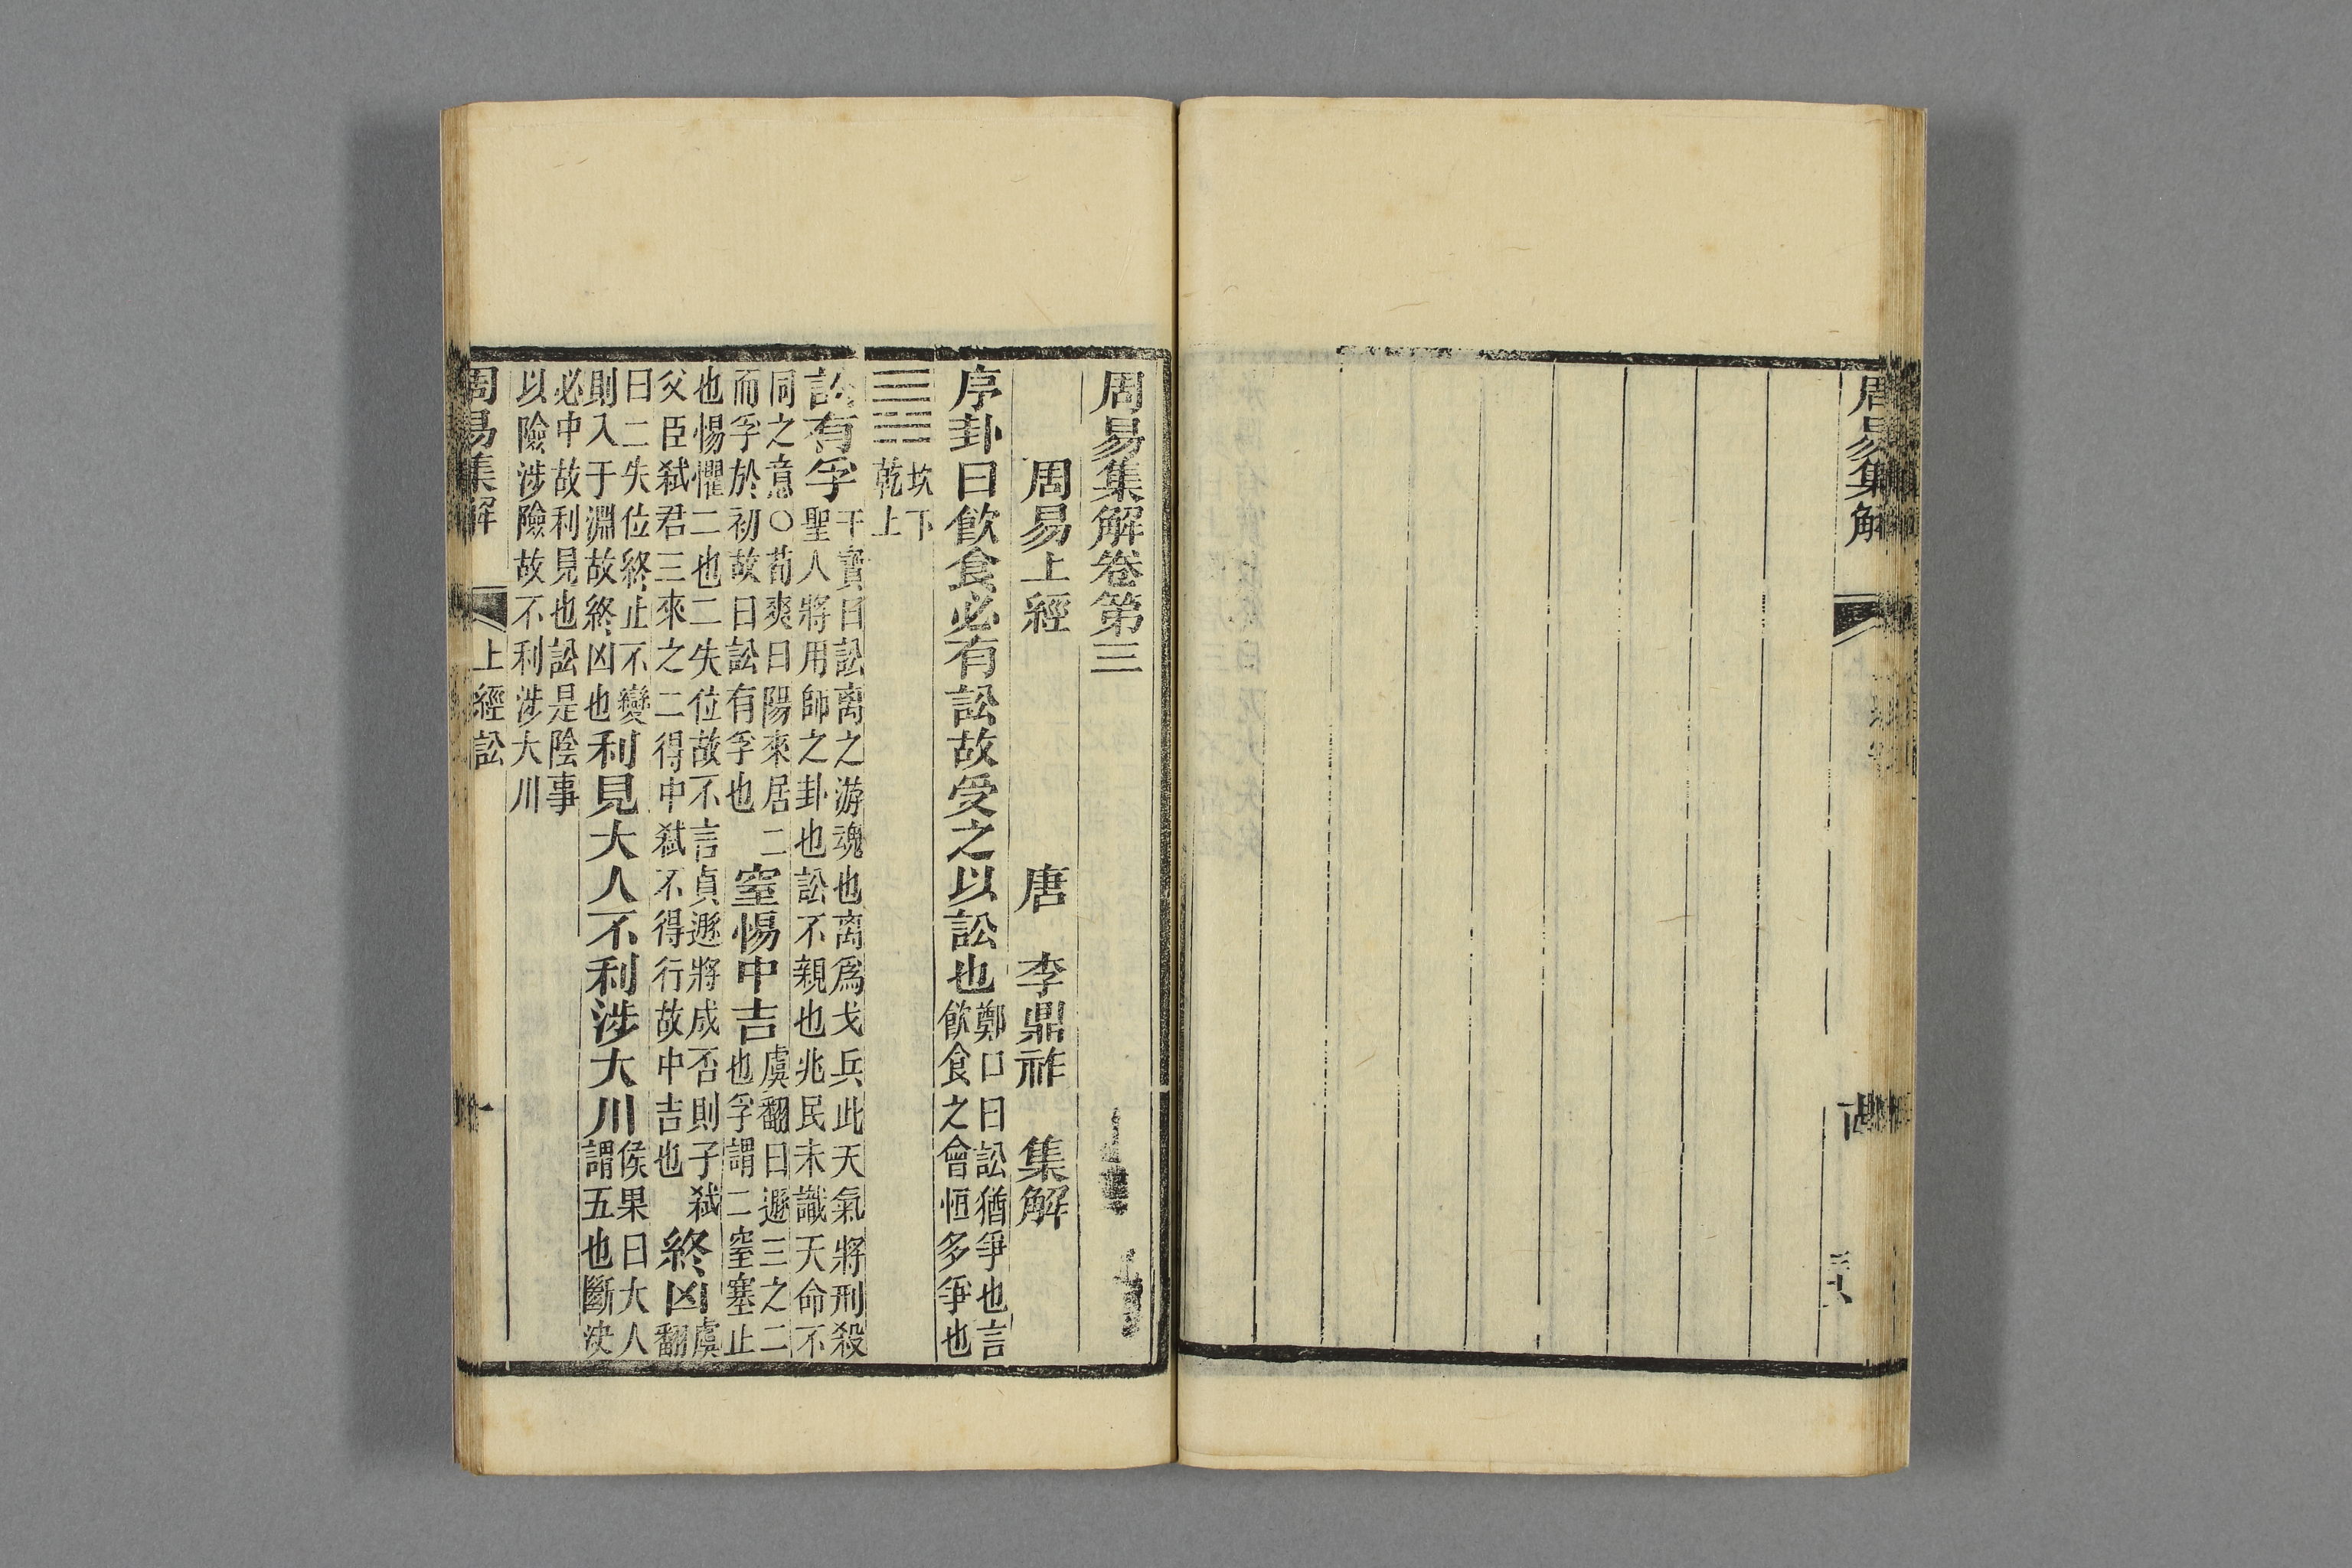 周易集解
周易集解卷第三
周易上經 唐 李鼎祚 集解
序卦曰飲食必有訟故受之以訟也
鄭口曰訟猶爭也言
飲食之會恒多爭也
坎下
乾上
訟有孚
干寶曰訟离之游魂也离爲戈兵此天氣將刑殺
聖人將用師之卦也訟不親也兆民未識天命不
同之意○荀爽曰陽來居二
而孚於初故曰訟有孚也
窒惕中吉
虞翻曰遯三之二
也孚謂二窒塞止
也惕懼二也二失位故不言貞遯將成否則子弑
父臣弑君三來之二得中弑不得行故中吉也
終凶
虞
翻
曰二失位終止不變
則入于淵故終凶也
利見大人不利涉大川
侯果曰大人
謂五也斷決
必中故利見也訟是陰事
以險涉險故不利涉大川
周易集解 上經訟